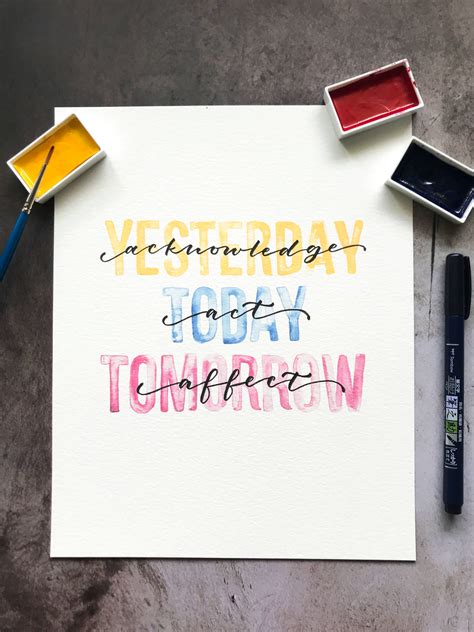 YESTERDAY
acknowledge
TODAY
act
TOMORROW
affect